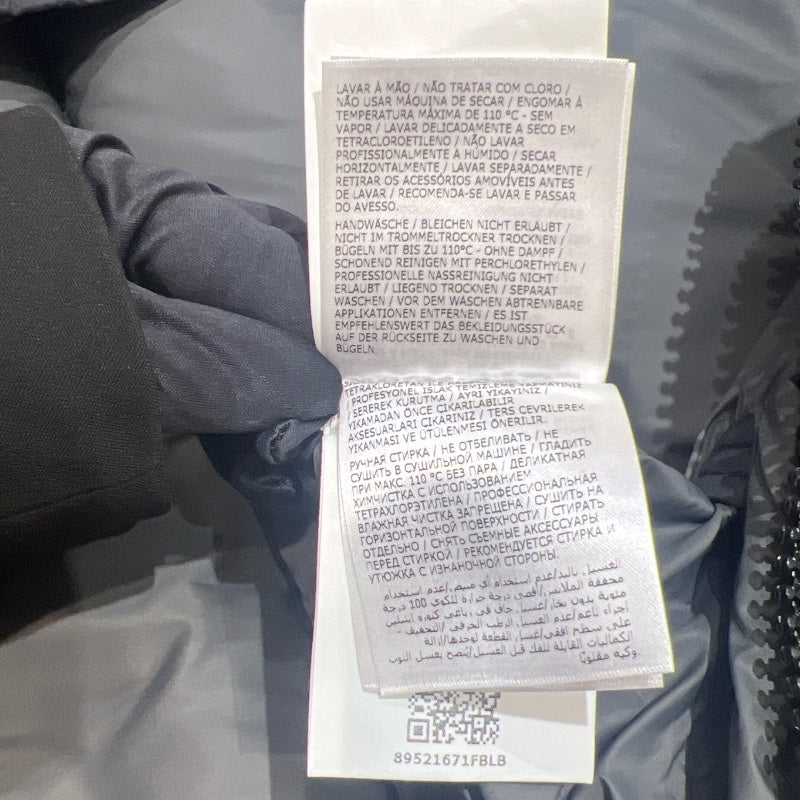 LAVAR À MÃO / NÃO TRATAR COM CLORO /
NÃO USAR MÁQUINA DE SECAR / ENGOMAR À
TEMPERATURA MÁXIMA DE 110 ºC - SEM
VAPOR / LAVAR DELICADAMENTE A SECO EM
TETRACLOROETILENO / NÃO LAVAR
PROFISSIONALMENTE À HÚMIDO / SECAR
HORIZONTALMENTE / LAVAR SEPARADAMENTE /
RETIRAR OS ACESSÓRIOS AMOVÍVEIS ANTES
DE LAVAR / RECOMENDA-SE LAVAR E PASSAR
DO AVESSO.
HANDWÄSCHE / BLEICHEN NICHT ERLAUBT /
NICHT IM TROMMELTROCKNER TROCKNEN /
BÜGELN MIT BIS ZU 110ºC - OHNE DAMPF /
SCHONEND REINIGEN MIT PERCHLORETHYLEN /
PROFESSIONELLE NASSREINIGUNG NICHT
ERLAUBT / LIEGEND TROCKNEN / SEPARAT
WASCHEN / VOR DEM WASCHEN ABTRENNBARE
APPLIKATIONEN ENTFERNEN / ES IST
EMPFEHLENSWERT DAS BEKLEIDUNGSSTÜCK
AUF DER RÜCKSEITE ZU WASCHEN UND
BÜGELN.
TETRAKLORETAN İLE TEMİZLEME YAPMAYINIZ
/ PROFESYONEL ISLAK TEMİZLEME YAPMAYINIZ
/ SEREREK KURUTMA / AYRI YIKAYINIZ /
YIKAMADAN ÖNCE ÇIKARILABİLİR
AKSESUARLARI ÇIKARINIZ / TERS ÇEVRİLEREK
YIKANMASI VE ÜTÜLENMESİ ÖNERİLİR.
РУЧНАЯ СТИРКА / НЕ ОТБЕЛИВАТЬ / НЕ
СУШИТЬ В СУШИЛЬНОЙ МАШИНЕ / ГЛАДИТЬ
ПРИ МАКС. 110 ºC БЕЗ ПАРА / ДЕЛИКАТНАЯ
ХИМЧИСТКА С ИСПОЛЬЗОВАНИЕМ
ТЕТРАХЛОРЭТИЛЕНА / ПРОФЕССИОНАЛЬНАЯ
ВЛАЖНАЯ ЧИСТКА ЗАПРЕЩЕНА / СУШИТЬ НА
ГОРИЗОНТАЛЬНОЙ ПОВЕРХНОСТИ / СТИРАТЬ
ОТДЕЛЬНО / СНЯТЬ СЪЕМНЫЕ АКСЕССУАРЫ
ПЕРЕД СТИРКОЙ / РЕКОМЕНДУЕТСЯ СТИРКА И
УТЮЖКА С ИЗНАНОЧНОЙ СТОРОНЫ.
الغسيل باليد/عدم استخدام أي مبيض/عدم استخدام
مجففة الملابس/أقصى درجة حرارة للكوي 100 درجة
مئوية بدون بخار/غسيل جاف
على سطح أفقي/غسل القطعة لوحدها/إزالة
الكماليات القابلة للفك قبل الغسيل/ينصح بغسل الثوب
وكيه مقلوبًا.
89521671FBLB